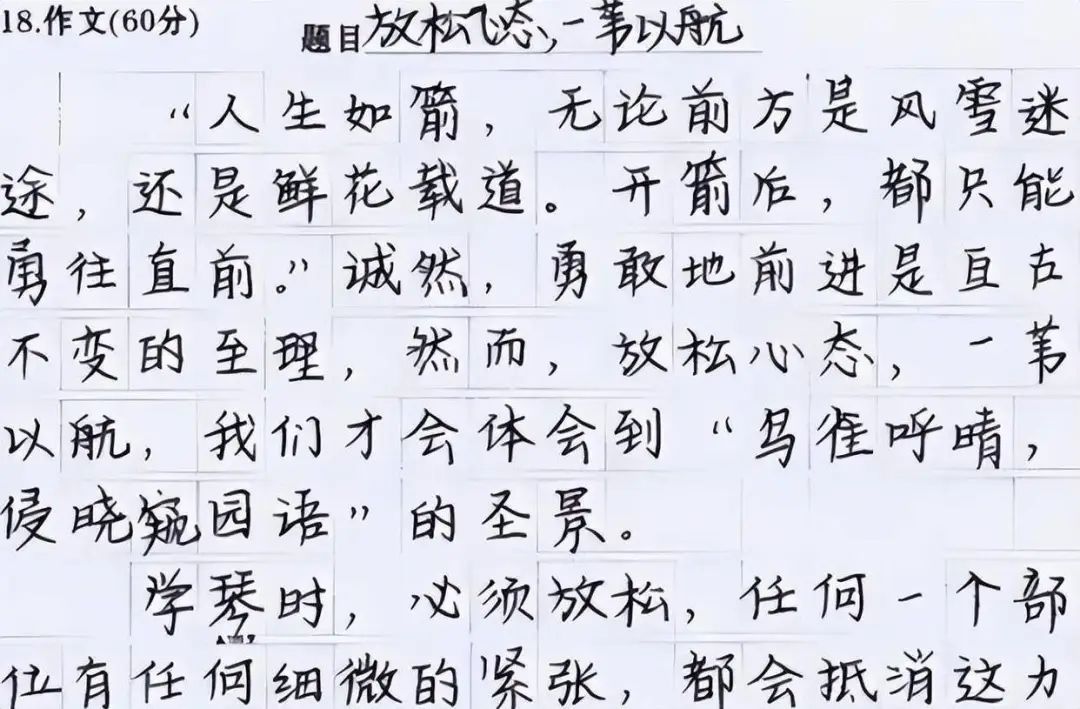 18.作文(60分) 题目放松心态,一苇以航
“人生如箭，无论前方是风雪迷
途，还是鲜花载道。开箭后，都只能
勇往直前。”诚然，勇敢地前进是亘古
不变的至理，然而，放松心态，一苇
以航，我们才会体会到“鸟雀呼晴，
侵晓窥园语”的圣景。
学琴时，必须放松，任何一个部
位有任何细微的紧张，都会抵消这力